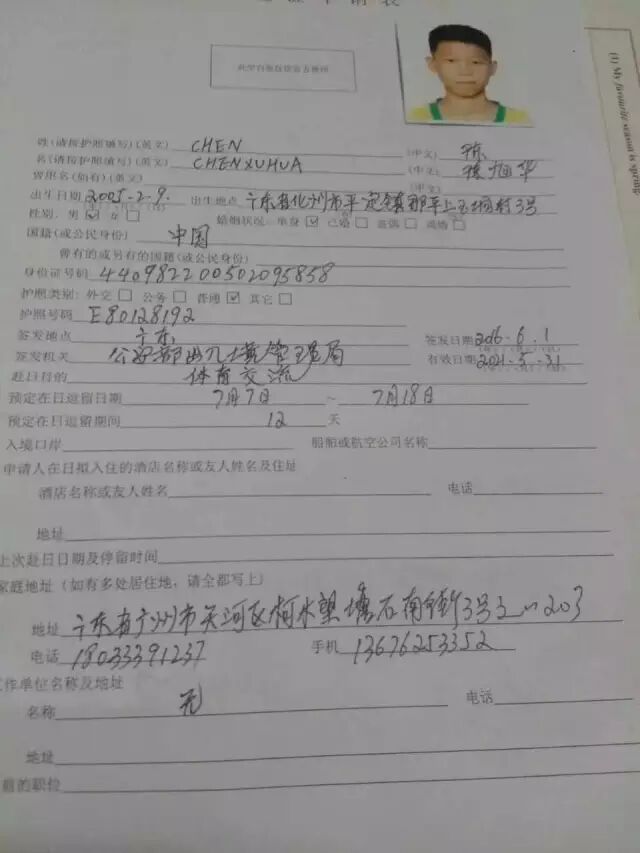 姓(请按护照填写)(英文) CHEN (中文) 陈
名(请按护照填写)(英文) CHENXUHUA (中文) 陈旭华
曾用名(如有)(英文) (中文)
出生日期 2005.2.9. 出生地点 广东省化州市平定镇那平上 村3号
性别: 男 ☑ 女 □ 婚姻状况: 单身 ☑ 已婚 □ 丧偶 □ 离婚 □
国籍(或公民身份) 中国
曾有的或另有的国籍(或公民身份)
身份证号码 440982200502095858
护照类别: 外交 □ 公务 □ 普通 ☑ 其它 □
护照号码 E80128192
签发地点 广东 签发日期 2016.6.1
签发机关 公安部出入境管理局 有效日期 2021.5.31
赴日目的 体育交流
预定在日逗留日期 7月7日 ~ 7月18日
预定在日逗留期间 12 天
入境口岸 船舶或航空公司名称
申请人在日拟入住的酒店名称或友人姓名及住址
酒店名称或友人姓名 电话
地址
上次赴日日期及停留时间
家庭地址(如有多处居住地,请全都写上)
地址 广东省广州市天河区柯木塱塘石南街3号 203
电话 18033391237 手机 13676253352
工作单位名称及地址
名称 无 电话
地址
的职位
(1) My favourite season is spring